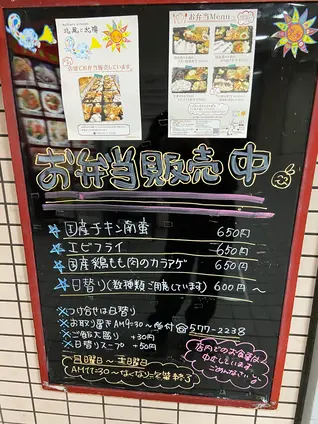 北風と太陽
店頭でお弁当販売しています。
お弁当Menu
お弁当販売中
☆国産チキン南蛮 650円
☆エビフライ 650円
☆国産鶏もも肉のカラアゲ 650円
☆日替り(数種類ご用意しています) 600円〜
※つけ合せは日替り
※お取り置きAM9:30〜受付☎577-2238
※ご飯大盛り +30円
※日替りスープ +50円
月曜日〜土曜日
AM11:30〜なくなり次第終了
店内でのお食事は
中止しています
ごめんなさい。